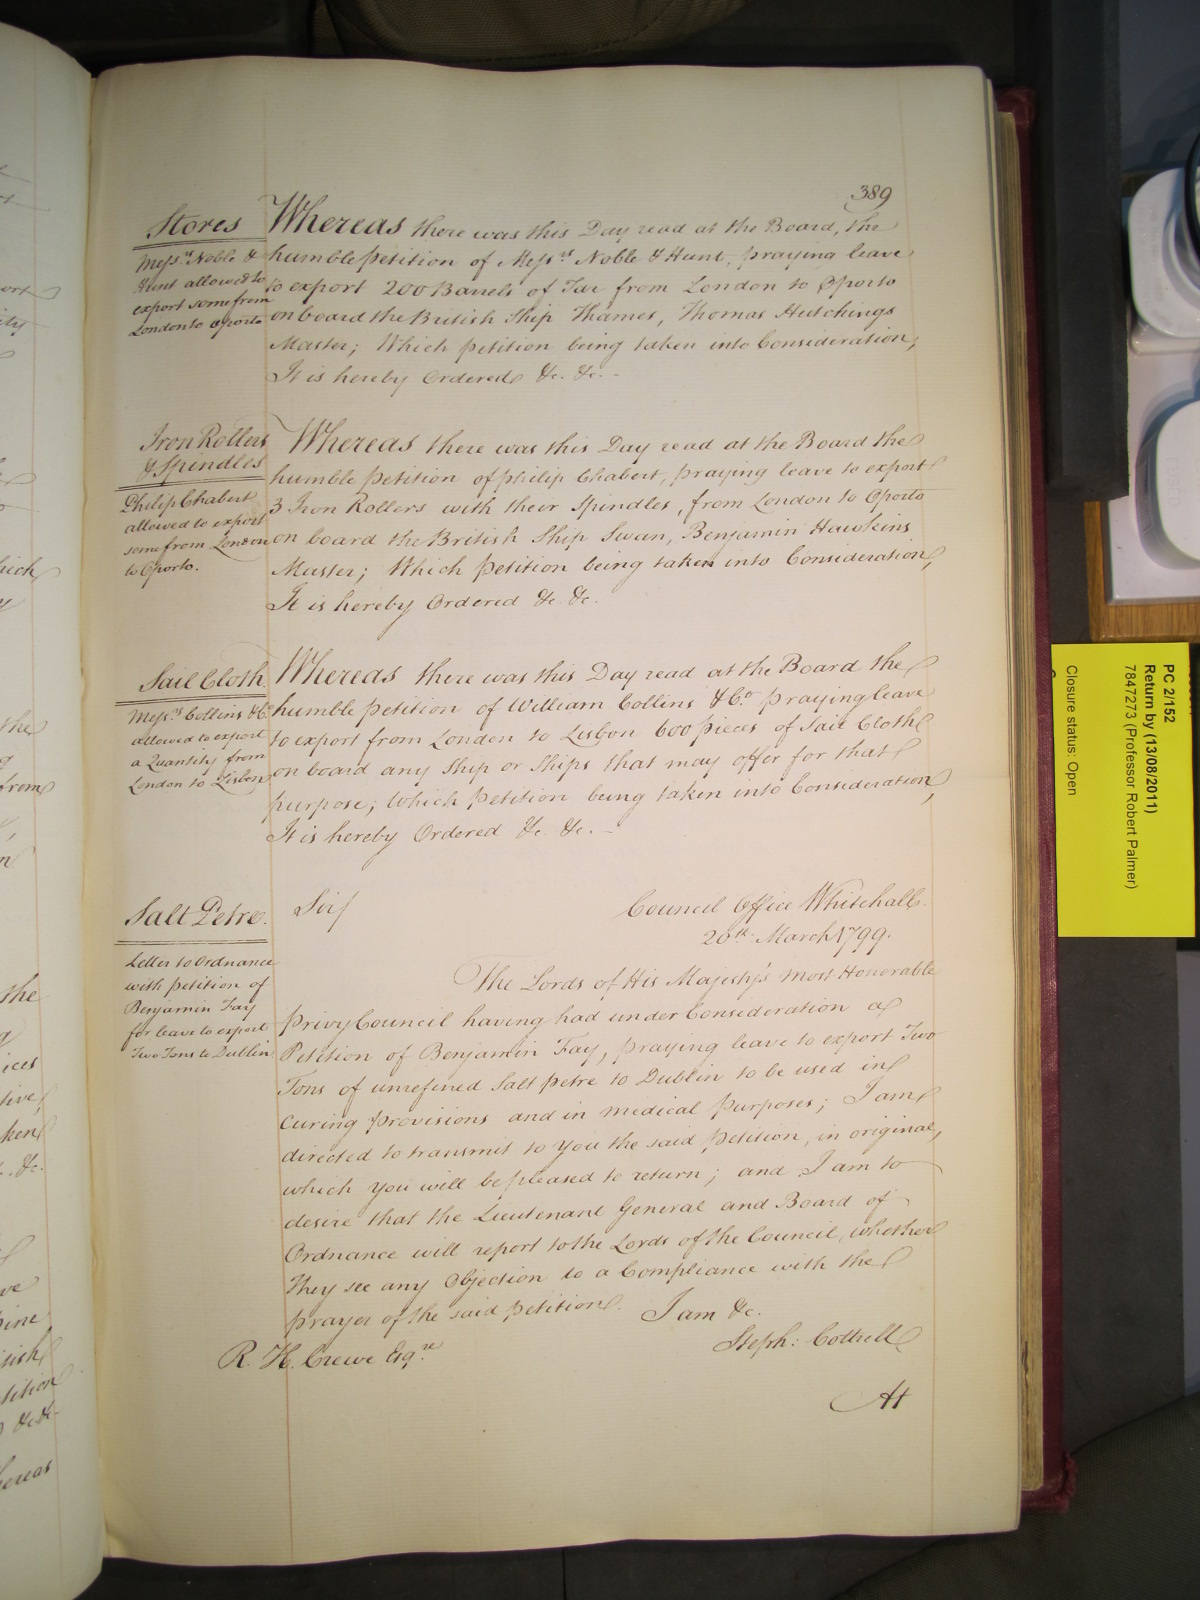 389
Stores
Mess.rs Noble &
Hunt allowed to
export some from
London to Oporto
Whereas there was this Day read at the Board, the
humble petition of Mess.rs Noble & Hunt, praying leave
to export 200 Barrels of Tar from London to Oporto
on board the British Ship Thames, Thomas Hutchings
Master; Which petition being taken into Consideration,
It is hereby Ordered &c. &c. -
Iron Rollers
& Spindles
Philip Chabert
allowed to export
some from London
to Oporto.
Whereas there was this Day read at the Board the
humble petition of philip Chabert, praying leave to export
3 Iron Rollers with their Spindles, from London to Oporto
on board the British Ship Swan, Benjamin Hawkins
Master; Which petition being taken into Consideration,
It is hereby Ordered &c. &c.
Sail Cloth
Mess.rs Collins & Co.
allowed to export
a Quantity from
London to Lisbon
Whereas there was this Day read at the Board the
humble petition of William Collins & Co. praying leave
to export from London to Lisbon 600 pieces of Sail Cloth
on board any Ship or Ships that may offer for that
purpose; Which petition being taken into Consideration,
It is hereby Ordered &c. &c. -
Salt Petre.
Letter to Ordnance
with petition of
Benjamin Fay
for leave to export
Two Tons to Dublin
Sir/
Council Office Whitehall.
20th. March 1799.
The Lords of His Majesty's most Honorable
privy Council having had under Consideration a
Petition of Benjamin Fay, praying leave to export Two
Tons of unrefined Salt petre to Dublin to be used in
curing provisions and in medical purposes; I am
directed to transmit to you the said petition, in original,
which you will be pleased to return; and I am to
desire that the Lieutenant General and Board of
Ordnance will report to the Lords of the Council, whether
they see any Objection to a Compliance with the
prayer of the said petition. I am &c.
Steph: Cottrell
R. H. Crewe Esq.re
At
PC 2/152
Return by (13/08/2011)
7847273 (Professor Robert Palmer)
Closure status: Open
hich
the
from
the
ices
tive,
ken
&c.
ve
pine
itish
tition
&c &c
hereas